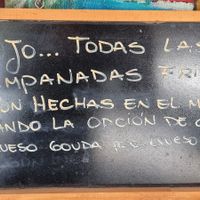 JO... TODAS LAS
MPANADAS FRI
ON HECHAS EN EL M
ANDO LA OPCIÓN DE C
UESO GOUDA QUESO